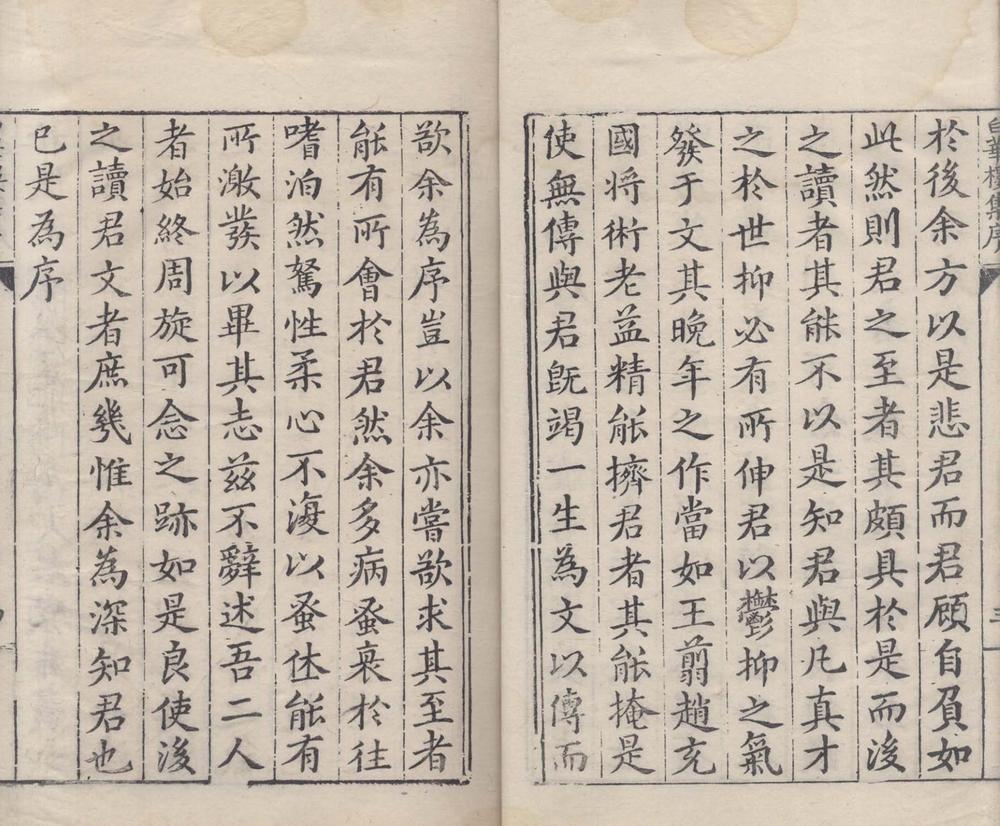 白華樓集序
於後余方以是悲君而君顧自負如
此然則君之至者其頗具於是而後
之讀者其能不以是知君與凡真才
之於世抑必有所伸君以鬱抑之氣
發于文其晚年之作當如王翦趙充
國将術老益精能擠君者其能掩是
使無傳與君旣竭一生為文以傳而
欲余為序豈以余亦嘗欲求其至者
能有所會於君然余多病蚤衰於往
嗜泊然駑性柔心不復以蚤休能有
所激發以畢其志茲不辭述吾二人
者始終周旋可念之跡如是良使後
之讀君文者庶幾惟余為深知君也
已是為序